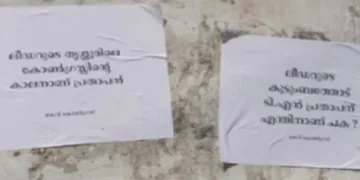 ലീഡറുടെ തൃശൂരിലെ
കോൺഗ്രസ്സിന്റെ
കാലനാണ് പ്രതാപൻ
ലീഡറുടെ
കുടുംബത്തോട്
ടി.എൻ പ്രതാപന്
എന്തിനാണ് പക ?